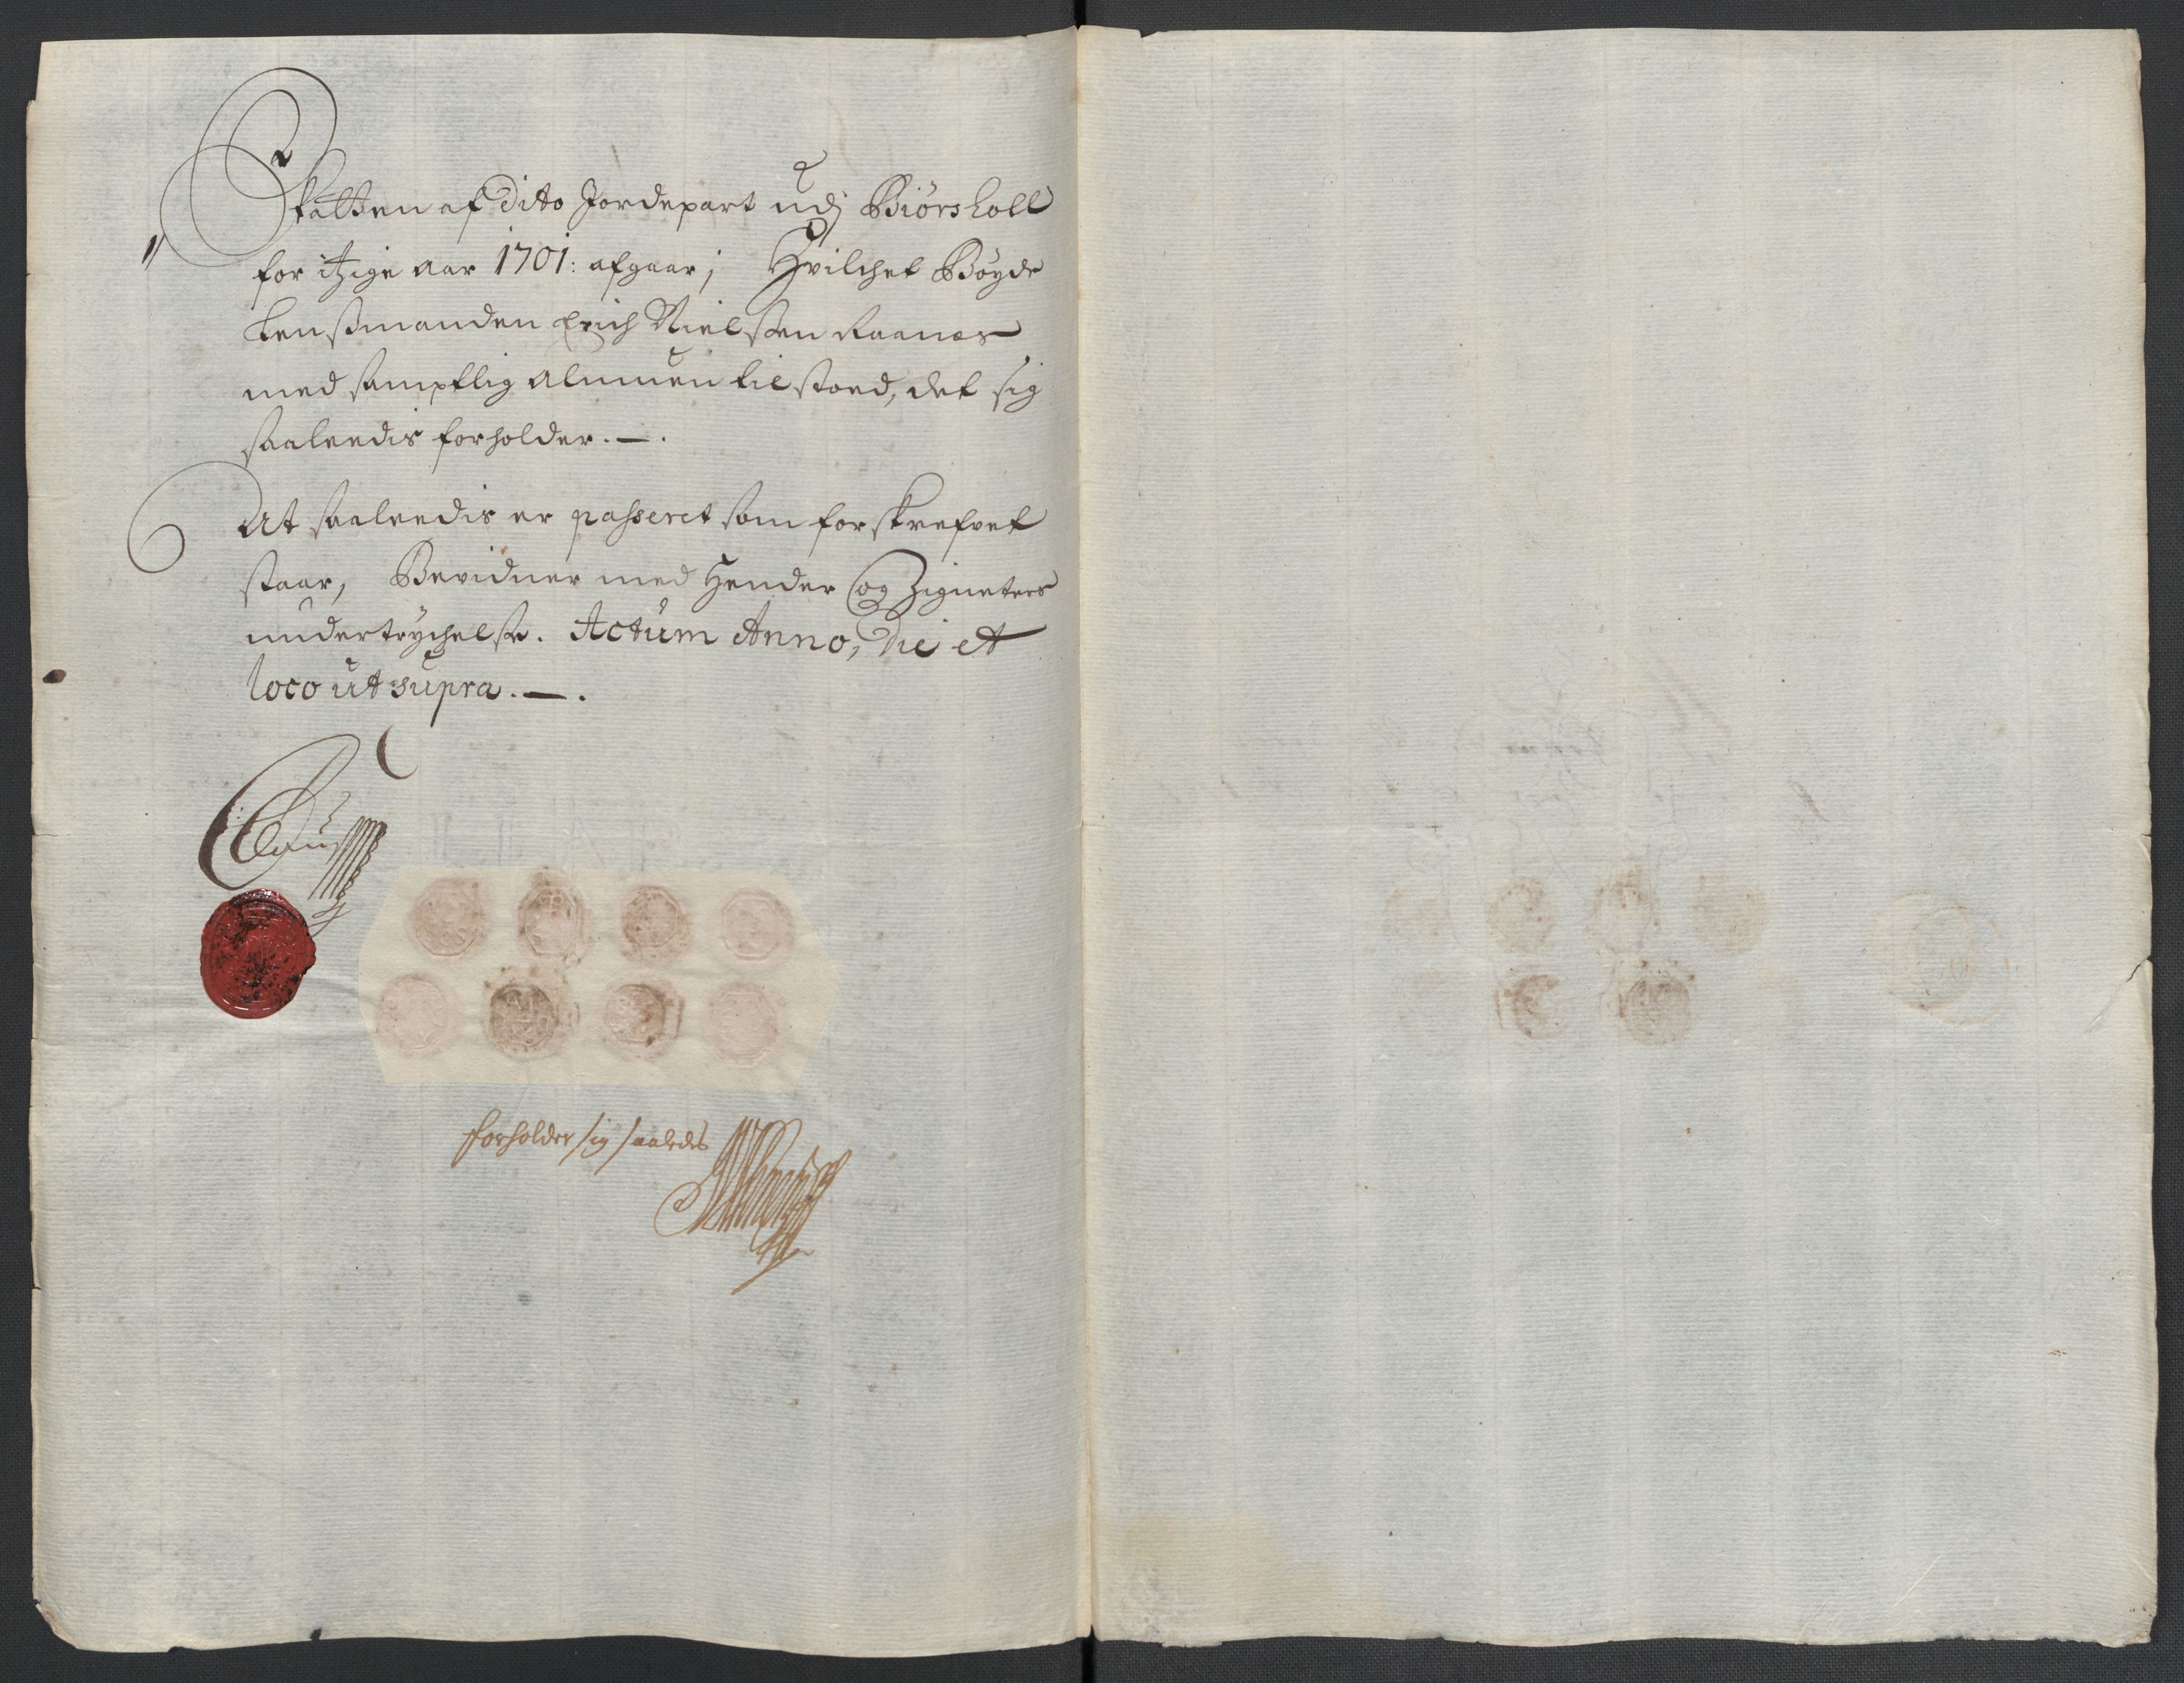 Skatten af dito Jordepart udj Biörsholl
for itzige aar 1701: afgaar; Hvilchet Böyde
Lensmanden Erich Nielsen Raanes
med samptlig Almuen tilstoed, det sig
saaleedis forholder. — .
At saaleedis er passeret som forskrefvet
staar, Bevidner med Hender og Zigneters
undertrychelse. Actum Anno, Die et
loco ut supra. — .
forholder sig saaledes